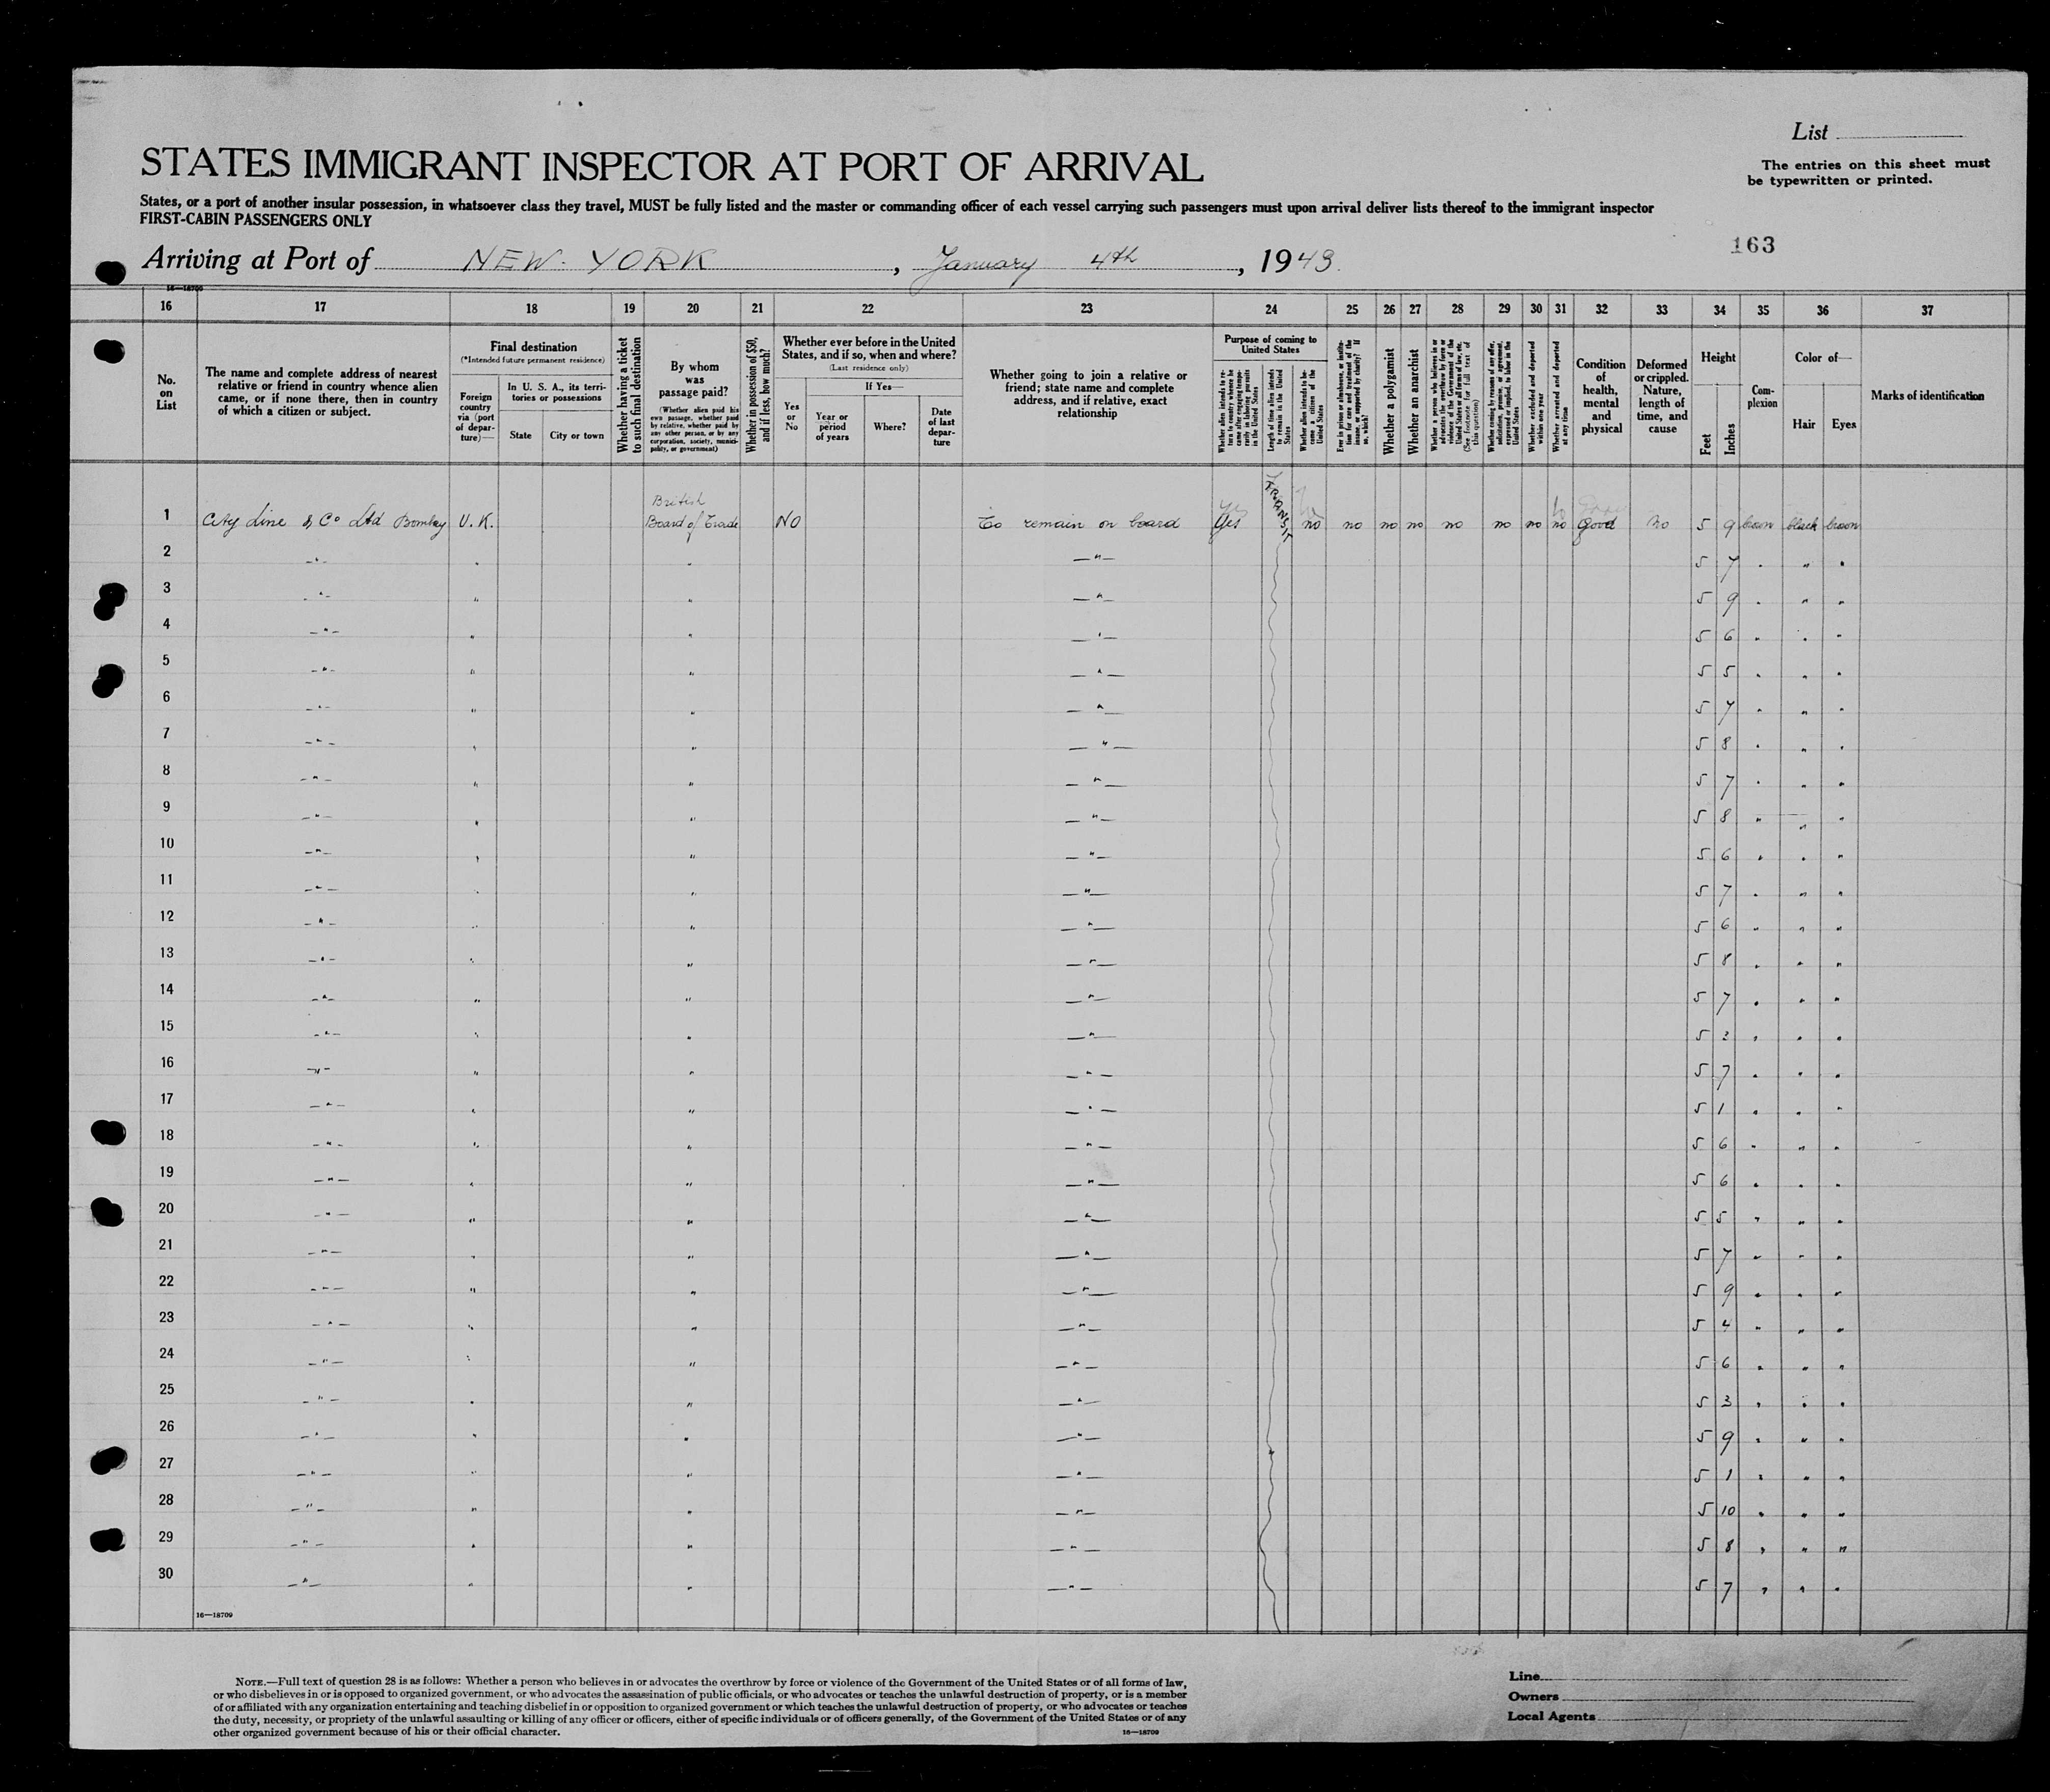 List
STATES IMMIGRANT INSPECTOR AT PORT OF ARRIVAL
The entries on this sheet must
be typewritten or printed.
States, or a port of another insular possession, in whatsoever class they travel, MUST be fully listed and the master or commanding officer of each vessel carrying such passengers must upon arrival deliver lists thereof to the immigrant inspector
FIRST-CABIN PASSENGERS ONLY
163
Arriving at Port of NEW YORK, January 4th, 1943.
16 17 18 19 20 21 22 23 24 25 26 27 28 29 30 31 32 33 34 35 36 37
No. on List
The name and complete address of nearest relative or friend in country whence alien came, or if none there, then in country of which a citizen or subject.
Final destination
(*Intended future permanent residence)
Foreign country via (port of departure)—
In U. S. A., its territories or possessions
State
City or town
Whether having a ticket to such final destination
By whom was passage paid?
(Whether alien paid his own passage, whether paid by relative, whether paid by any other person, or by any corporation, society, municipality, or government)
Whether in possession of $50, and if less, how much?
Whether ever before in the United States, and if so, when and where?
(Last residence only)
Yes or No
If Yes—
Year or period of years
Where?
Date of last departure
Whether going to join a relative or friend; state name and complete address, and if relative, exact relationship
Purpose of coming to United States
Whether alien intends to return to country whence he came after engaging temporarily in laboring pursuits in the United States
Length of time alien intends to remain in the United States
Whether alien intends to become a citizen of the United States
Ever in prison or almshouse, or institution for care and treatment of the insane, or supported by charity? If so, which?
Whether a polygamist
Whether an anarchist
Whether a person who believes in or advocates the overthrow by force or violence of the Government of the United States or all forms of law, etc. (See footnote for full text of this question)
Whether coming by reasons of any offer, solicitation, promise, or agreement, expressed or implied, to labor in the United States
Whether excluded and deported within one year
Whether arrested and deported at any time
Condition of health, mental and physical
Deformed or crippled. Nature, length of time, and cause
Height
Feet
Inches
Complexion
Color of—
Hair
Eyes
Marks of identification
1 City Line & Co Ltd Bombay U.K. British Board of Trade NO To remain on board yes TRANSIT no no no no no no no no good no 5 9 brown black brown
2 —"— " " —"— 5 7 " " "
3 —"— " " —"— 5 9 " " "
4 —"— " " —"— 5 6 " " "
5 —"— " " —"— 5 5 " " "
6 —"— " " —"— 5 7 " " "
7 —"— " " —"— 5 8 " " "
8 —"— " " —"— 5 7 " " "
9 —"— " " —"— 5 8 " " "
10 —"— " " —"— 5 6 " " "
11 —"— " " —"— 5 7 " " "
12 —"— " " —"— 5 6 " " "
13 —"— " " —"— 5 8 " " "
14 —"— " " —"— 5 7 " " "
15 —"— " " —"— 5 " " "
16 —"— " " —"— 5 7 " " "
17 —"— " " —"— 5 1 " " "
18 —"— " " —"— 5 6 " " "
19 —"— " " —"— 5 6 " " "
20 —"— " " —"— 5 5 " " "
21 —"— " " —"— 5 7 " " "
22 —"— " " —"— 5 9 " " "
23 —"— " " —"— 5 4 " " "
24 —"— " " —"— 5 6 " " "
25 —"— " " —"— 5 3 " " "
26 —"— " " —"— 5 9 " " "
27 —"— " " —"— 5 1 " " "
28 —"— " " —"— 5 10 " " "
29 —"— " " —"— 5 8 " " "
30 —"— " " —"— 5 7 " " "
16—18709
NOTE.—Full text of question 28 is as follows: Whether a person who believes in or advocates the overthrow by force or violence of the Government of the United States or of all forms of law,
or who disbelieves in or is opposed to organized government, or who advocates the assassination of public officials, or who advocates or teaches the unlawful destruction of property, or is a member
of or affiliated with any organization entertaining and teaching disbelief in or opposition to organized government or which teaches the unlawful destruction of property, or who advocates or teaches
the duty, necessity, or propriety of the unlawful assaulting or killing of any officer or officers, either of specific individuals or of officers generally, of the Government of the United States or of any
other organized government because of his or their official character.
16—18709
Line
Owners
Local Agents